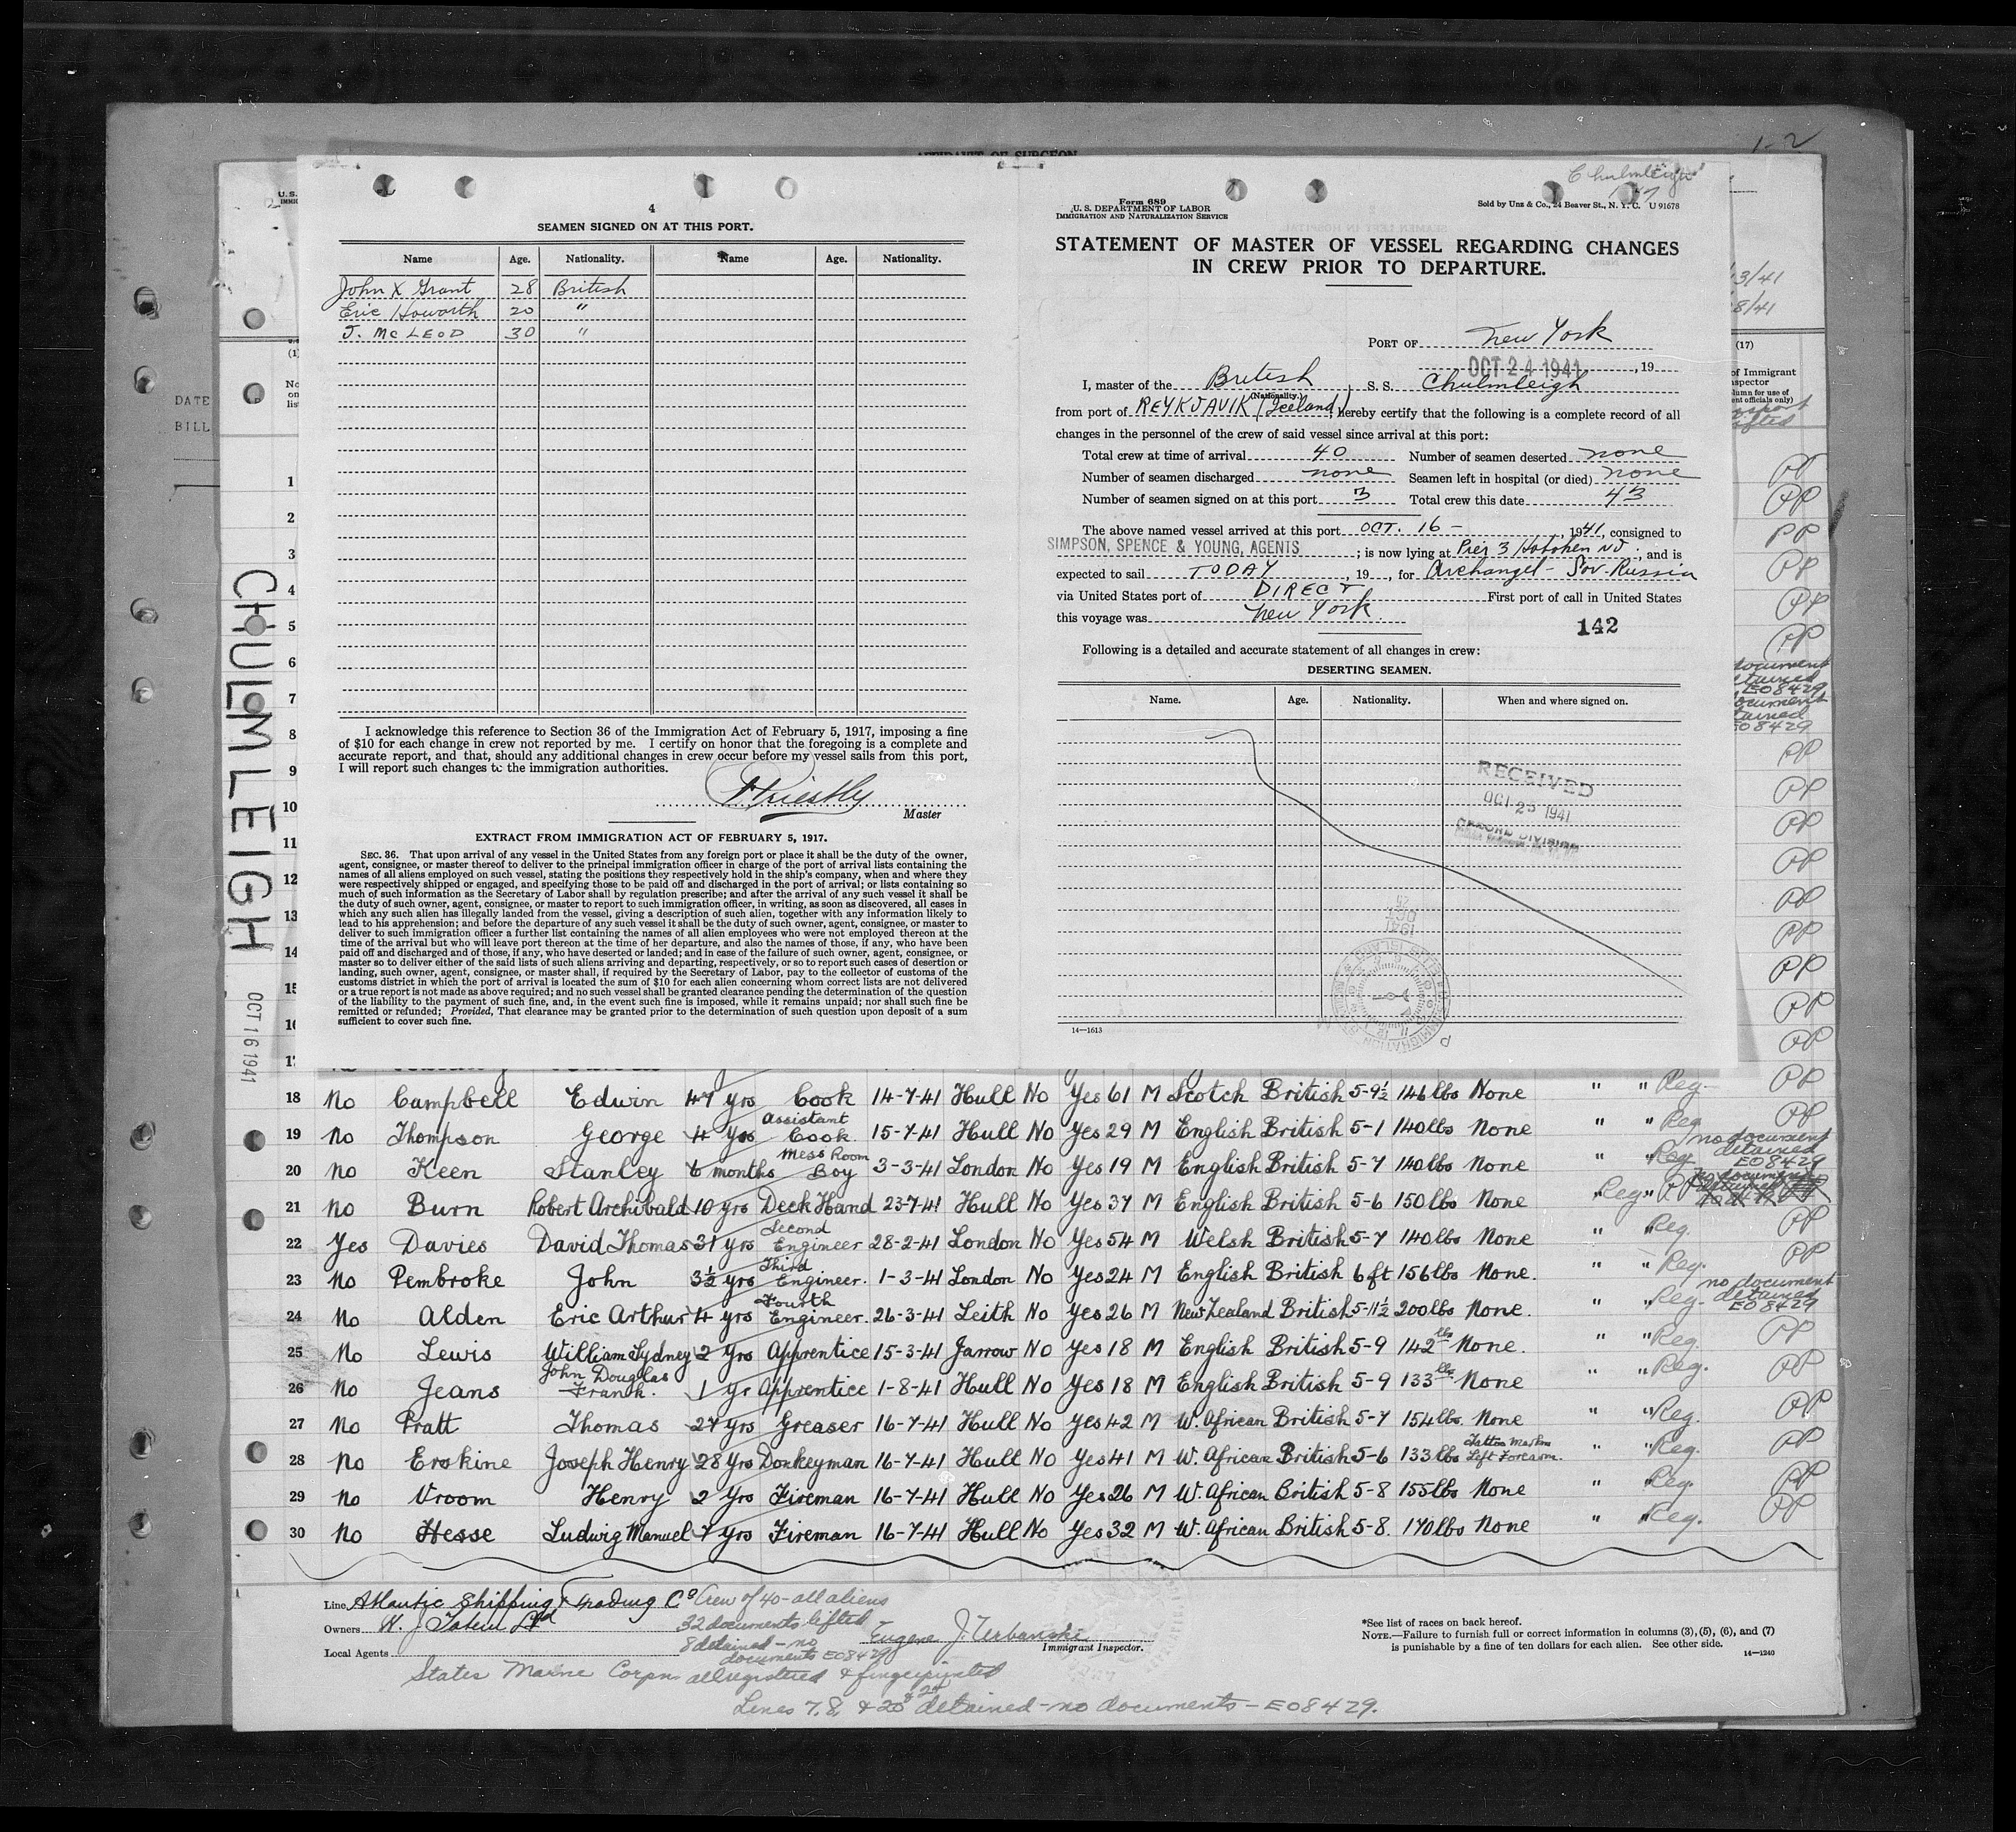 AFFIDAVIT OF SURGEON
1-2
DATE
BILL
U.S.
4
SEAMEN SIGNED ON AT THIS PORT.
Name Age. Nationality. Name Age. Nationality.
John X Grant 28 British
Eric Howorth 20 "
J. McLEOD 30 "
I acknowledge this reference to Section 36 of the Immigration Act of February 5, 1917, imposing a fine
of $10 for each change in crew not reported by me. I certify on honor that the foregoing is a complete and
accurate report, and that, should any additional changes in crew occur before my vessel sails from this port,
I will report such changes to the immigration authorities.
Priestly
Master
EXTRACT FROM IMMIGRATION ACT OF FEBRUARY 5, 1917.
SEC. 36. That upon arrival of any vessel in the United States from any foreign port or place it shall be the duty of the owner,
agent, consignee, or master thereof to deliver to the principal immigration officer in charge of the port of arrival lists containing the
names of all aliens employed on such vessel, stating the positions they respectively hold in the ship's company, when and where they
were respectively shipped or engaged, and specifying those to be paid off and discharged in the port of arrival; or lists containing so
much of such information as the Secretary of Labor shall by regulation prescribe; and after the arrival of any such vessel it shall be
the duty of such owner, agent, consignee, or master to report to such immigration officer, in writing, as soon as discovered, all cases in
which any such alien has illegally landed from the vessel, giving a description of such alien, together with any information likely to
lead to his apprehension; and before the departure of any such vessel it shall be the duty of such owner, agent, consignee, or master to
deliver to such immigration officer a further list containing the names of all alien employees who were not employed thereon at the
time of the arrival but who will leave port thereon at the time of her departure, and also the names of those, if any, who have been
paid off and discharged, and of those, if any, who have deserted or landed; and in case of the failure of such owner, agent, consignee, or
master so to deliver either of the said lists of such aliens arriving and departing, respectively, or so to report such cases of desertion or
landing, such owner, agent, consignee, or master shall, if required by the Secretary of Labor, pay to the collector of customs of the
customs district in which the port of arrival is located the sum of $10 for each alien concerning whom correct lists are not delivered
or a true report is not made as above required; and no such vessel shall be granted clearance pending the determination of the question
of the liability to the payment of such fine, and, in the event such fine is imposed, while it remains unpaid; nor shall such fine be
remitted or refunded; Provided, That clearance may be granted prior to the determination of such question upon deposit of a sum
sufficient to cover such fine.
Chulmleigh
Form 689
U. S. DEPARTMENT OF LABOR
IMMIGRATION AND NATURALIZATION SERVICE
Sold by Unz & Co., 24 Beaver St., N. Y. C. U 91678
STATEMENT OF MASTER OF VESSEL REGARDING CHANGES
IN CREW PRIOR TO DEPARTURE.
PORT OF New York
OCT 24 1941, 19
I, master of the British (Nationality.), S. S. Chulmleigh
from port of REYKJAVIK (Iceland) hereby certify that the following is a complete record of all
changes in the personnel of the crew of said vessel since arrival at this port:
Total crew at time of arrival 40 Number of seamen deserted none
Number of seamen discharged none Seamen left in hospital (or died) none
Number of seamen signed on at this port 3 Total crew this date 43
The above named vessel arrived at this port OCT. 16 -, 1941, consigned to
SIMPSON, SPENCE & YOUNG, AGENTS; is now lying at Pier 3 Hoboken NJ, and is
expected to sail TODAY, 19, for Archangel - Sov. Russia
via United States port of DIRECT First port of call in United States
this voyage was New York.
142
Following is a detailed and accurate statement of all changes in crew:
DESERTING SEAMEN.
Name. Age. Nationality. When and where signed on.
RECEIVED
OCT 25 1941
RECORD DIVISION
14—1613
3/41
8/41
(17)
of Immigrant
CHULMLEIGH
OCT 16 1941
1
2
3
4
5
6
7
8
9
10
11
12
13
14
15
18 No Campbell Edwin 47 yrs Cook 14-7-41 Hull No Yes 61 M Scotch British 5-9½ 146 lbs None " " Reg. PP
19 No Thompson George 4 yrs Assistant Cook 15-7-41 Hull No Yes 29 M English British 5-1 140 lbs None " " Reg PP
20 No Keen Stanley 6 months Mess Room Boy 3-3-41 London No Yes 19 M English British 5-7 140 lbs None " " Reg no document detained EO 8429
21 No Burn Robert Archibald 10 yrs Deck Hand 23-7-41 Hull No Yes 37 M English British 5-6 150 lbs None " Reg " PP
22 Yes Davies David Thomas 31 yrs Second Engineer 28-2-41 London No Yes 54 M Welsh British 5-7 140 lbs None " " Reg. PP
23 No Pembroke John 3½ yrs Third Engineer. 1-3-41 London No Yes 24 M English British 6 ft 156 lbs None. " " Reg. PP
24 No Alden Eric Arthur 4 yrs Fourth Engineer. 26-3-41 Leith No Yes 26 M New Zealand British 5-11½ 200 lbs None. " " Reg. no document detained EO 8429
25 No Lewis William Sydney 2 yrs Apprentice 15-3-41 Jarrow No Yes 18 M English British 5-9 142 lbs None. " " Reg. PP
26 No Jeans John Douglas Frank. 1 yr Apprentice 1-8-41 Hull No Yes 18 M English British 5-9 133 lbs None " " Reg. PP
27 No Pratt Thomas 27 yrs Greaser 16-7-41 Hull No Yes 42 M W. African British 5-7 154 lbs. None " " Reg. PP
28 No Erskine Joseph Henry 28 yrs Donkeyman 16-7-41 Hull No Yes 41 M W. African British 5-6 133 lbs Tattoo Marks Left Forearm. " " Reg. PP
29 No Vroom Henry 2 yrs Fireman 16-7-41 Hull No Yes 26 M W. African British 5-8 155 lbs None " " Reg. PP
30 No Hesse Ludwig Manuel 7 yrs Fireman 16-7-41 Hull No Yes 32 M W. African British 5-8. 170 lbs None " " Reg. PP
Line Atlantic Shipping & Trading Co Crew of 40 - all aliens
Owners W. J. Tatem Ltd 32 documents lifted
8 detained - no documents EO 8429
Eugene J. Urbanski
Immigrant Inspector.
Local Agents
States Marine Corpn all registered & fingerprinted
Lines 7, 8, & 20 & 24 detained - no documents - EO 8429.
*See list of races on back hereof.
NOTE.—Failure to furnish full or correct information in columns (3), (5), (6), and (7)
is punishable by a fine of ten dollars for each alien. See other side.
14—1240